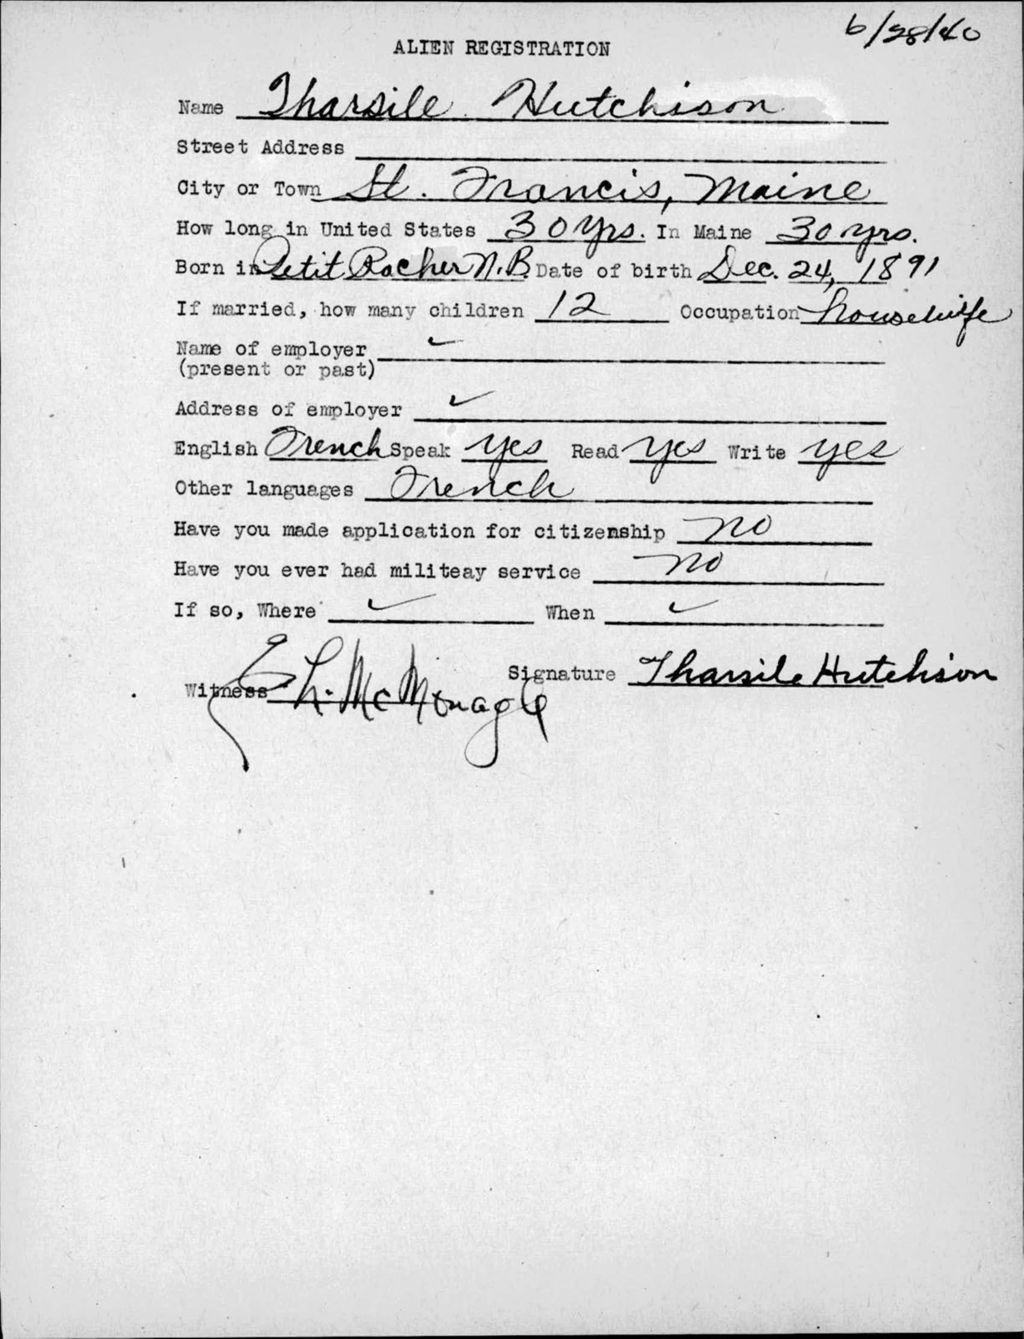 6/28/40
ALIEN REGISTRATION
Name Tharsile Hutchison
Street Address
City or Town St. Francis, Maine
How long in United States 30 yrs. In Maine 30 yrs.
Born in Petit Rocher N.B. Date of birth Dec. 24, 1891
If married, how many children 12 Occupation housewife
Name of employer
(present or past)
Address of employer
English French Speak yes Read yes Write yes
Other languages French
Have you made application for citizenship no
Have you ever had militeay service no
If so, Where When
Signature Tharsile Hutchison
Witness E. L. McMonagle